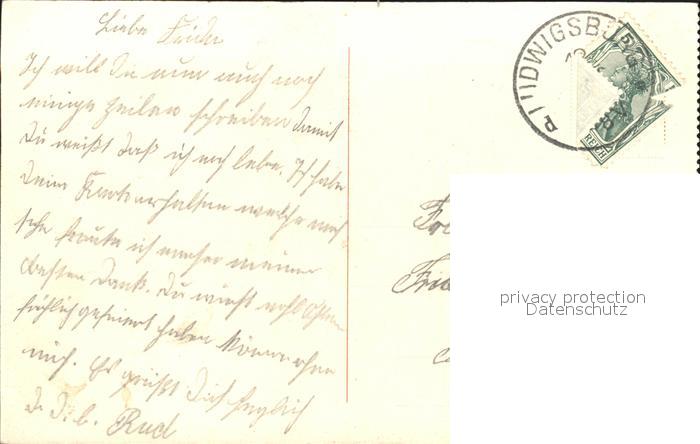 Liebe Frida
Ich will Dir nun auch noch
einige Zeilen schreiben damit
Du weißt daß ich noch lebe. Ich habe
Deine Karte erhalten welche mich
freute ich meinen
besten Dank. Du wirst wohl Ostern
fröhlich gefeiert haben können ohne
mich. Es grüßt Dich herzlich
D. D. l. Rud
LUDWIGSBU
5
REICH
Fr
Frie
privacy protection
Datenschutz